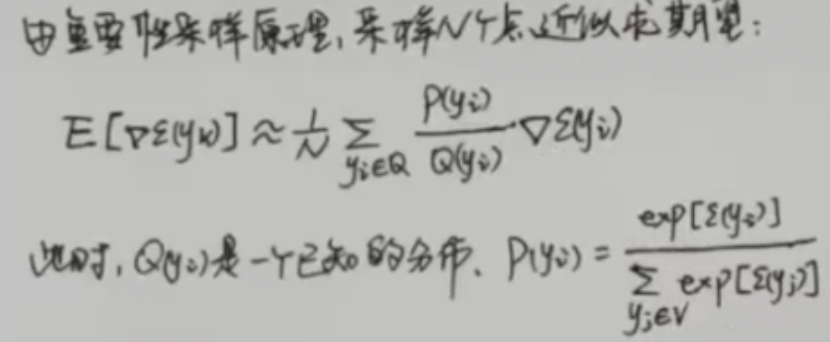 由重要性采样原理,采样N个点近似求期望:
E[∇ε(yᵢ)] ≈ 1/N ∑_{yᵢ∈Q} P(yᵢ)/Q(yᵢ) · ∇ε(yᵢ)
此时,Q(yᵢ)是一个已知的分布、P(yᵢ) = exp[ε(yᵢ)] / ∑_{yⱼ∈V} exp[ε(yⱼ)]